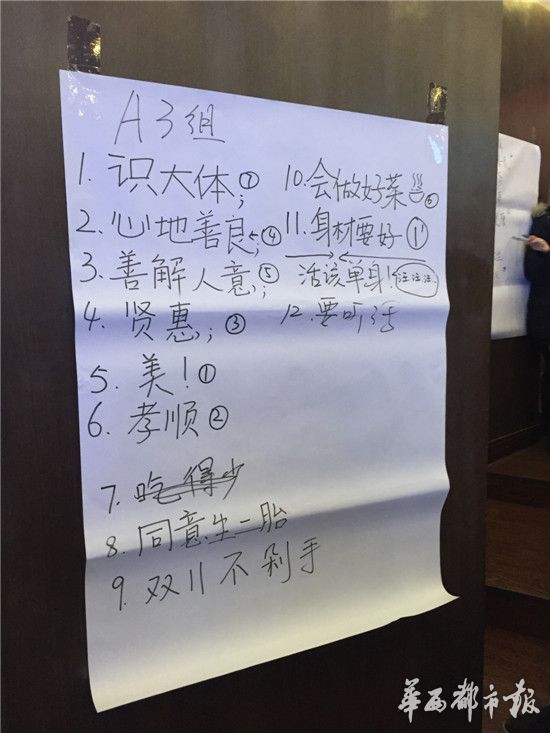 A3组
1. 识大体；⑦
2. 心地善良；④
3. 善解人意；⑤
4. 贤惠；③
5. 美！①
6. 孝顺②
7. 吃得少
8. 同意生二胎
9. 双11不剁手
10. 会做好菜⑥
11. 身材要好①'
活该单身！注注注.
12. 要听话
华西都市报